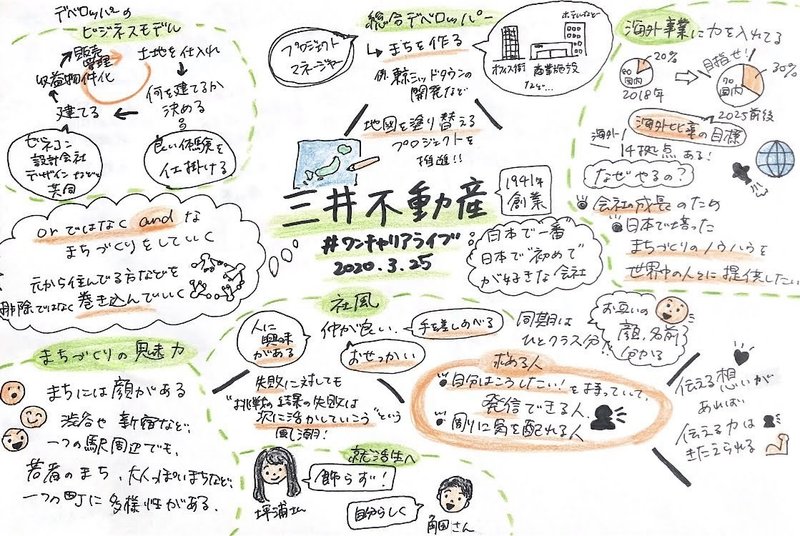 デベロッパーの
ビジネスモデル
販売
管理
土地を仕入れ
収益物件化
何を建てるか
決める
建てる
ゼネコン
設計会社
デザイン会社と
共同
良い体験を
仕掛ける
総合デベロッパー
プロジェクト
マネージャー
まちを作る
例. 東京ミッドタウンの
開発など
ホテルなど
オフィス街
商業施設
など…
地図を塗り替える
プロジェクトを
推進!!
海外事業に力を入れてる
20%
80
国内
2018年
目指せ!
30%
70
国内
2025前後
海外比率の目標
海外
14拠点ある!
なぜやるの?
会社の成長のため
日本で培った
まちづくりのノウハウを
世界中の人々に提供したい
三井不動産
1941年
創業
#ワンキャリアライブ
2020.3.25
日本で一番
日本で"初めて"
が好きな会社
orではなくandな
まちづくりをしていく
元から住んでる方などを
排除ではなく巻き込んでいく
まちづくりの興味力
まちには顔がある
渋谷や新宿など、
一つの駅周辺でも、
若者のまち、大人っぽいまちなど、
一つの町に多様性がある。
社風
人に
興味
がある
仲が良い、
手を差しのべる
おせっかい
同期は
ひとクラス分
お互いの
顔、名前
分かる
失敗に対しても
"挑戦の結果の失敗は
次に活かしていこう"という
風潮!
求める人
自分はこうしたい!をもっていて、
発信できる人
周りに気を配れる人
伝える想いが
あれば
伝える力は
きたえられる
就活生へ
飾らず!
坪浦さん
自分らしく
角田さん